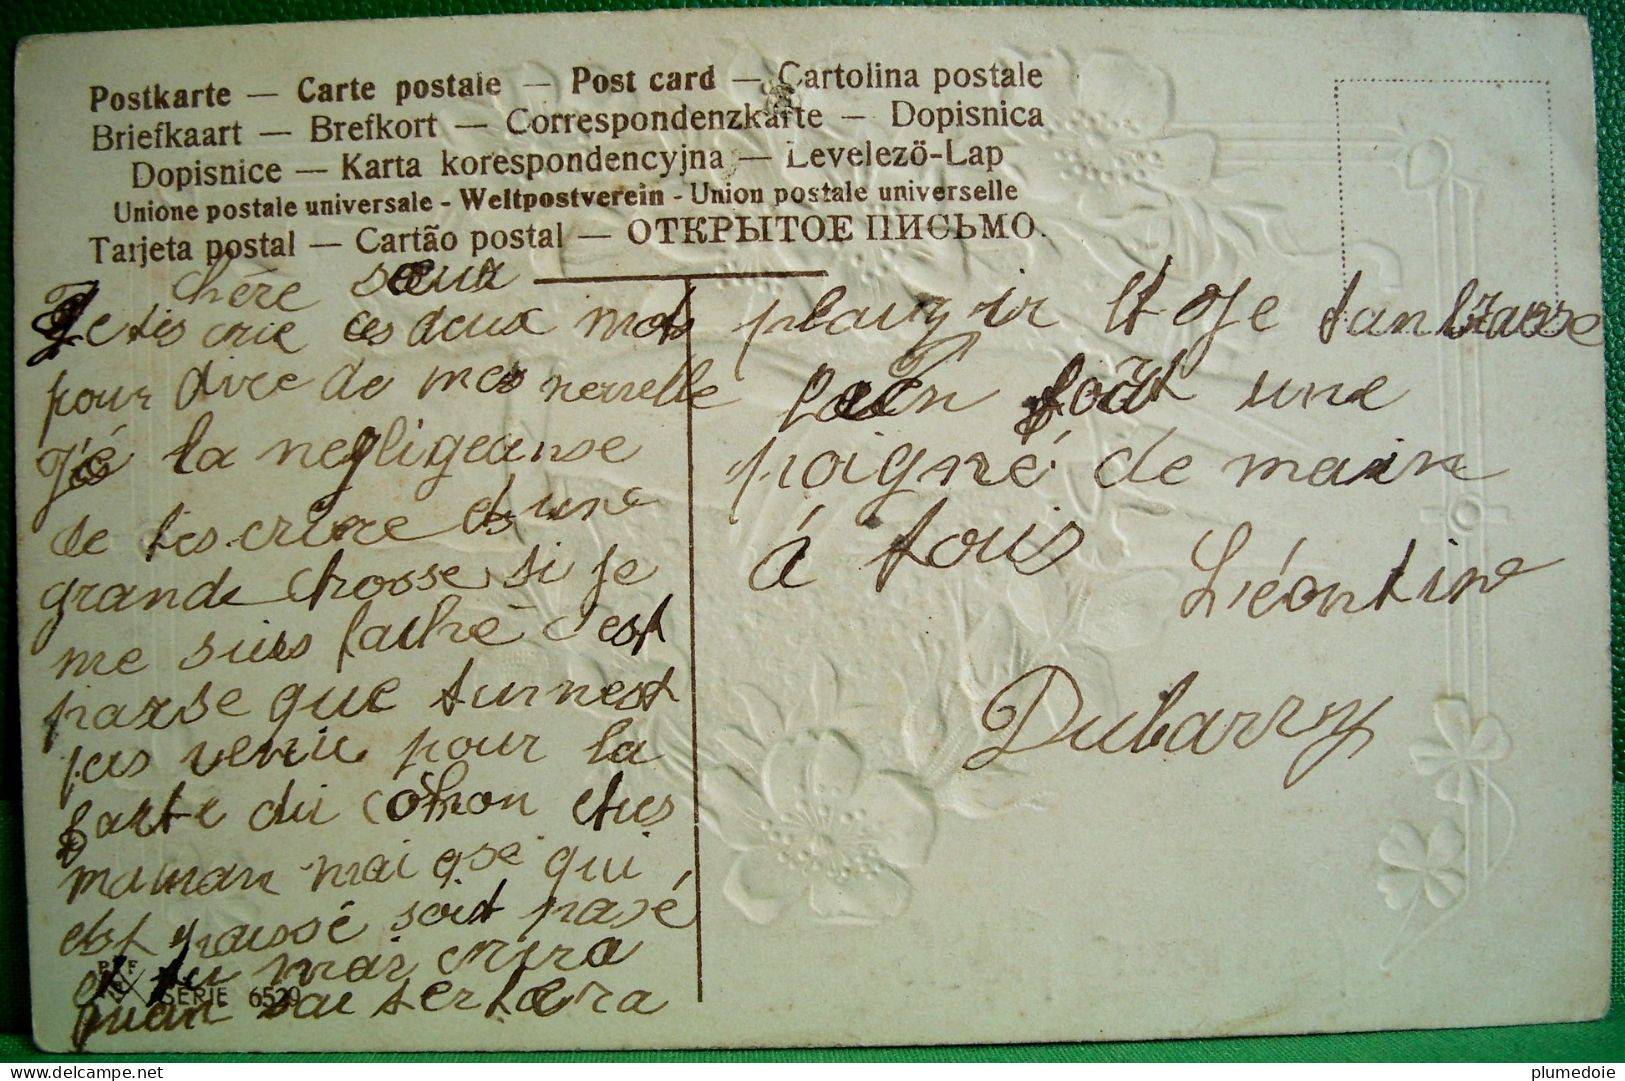 Postkarte — Carte postale — Post card — Cartolina postale
Briefkaart — Brefkort — Correspondenzkarte — Dopisnica
Dopisnice — Karta korespondencyjna — Levelezö-Lap
Unione postale universale - Weltpostverein - Union postale universelle
Tarjeta postal — Cartão postal — ОТКРЫТОЕ ПИСЬМО.
chère sœur
Je tés crie ces deux mots
pour dire de mes nervelle
j'é la negligeanse
de tes crire dune
grande chosse si je
me suis faché c'est
parse que tunnest
pas venu pour la
farte du cohon
maman mai qse qui
est passé soit pasé
et tu mai crira
quan sai tertera
plaizir et je tanbrasse
bien foart une
poigné de main
á tous
Léontine
Dubarry
SERIE 6529
plumedoie